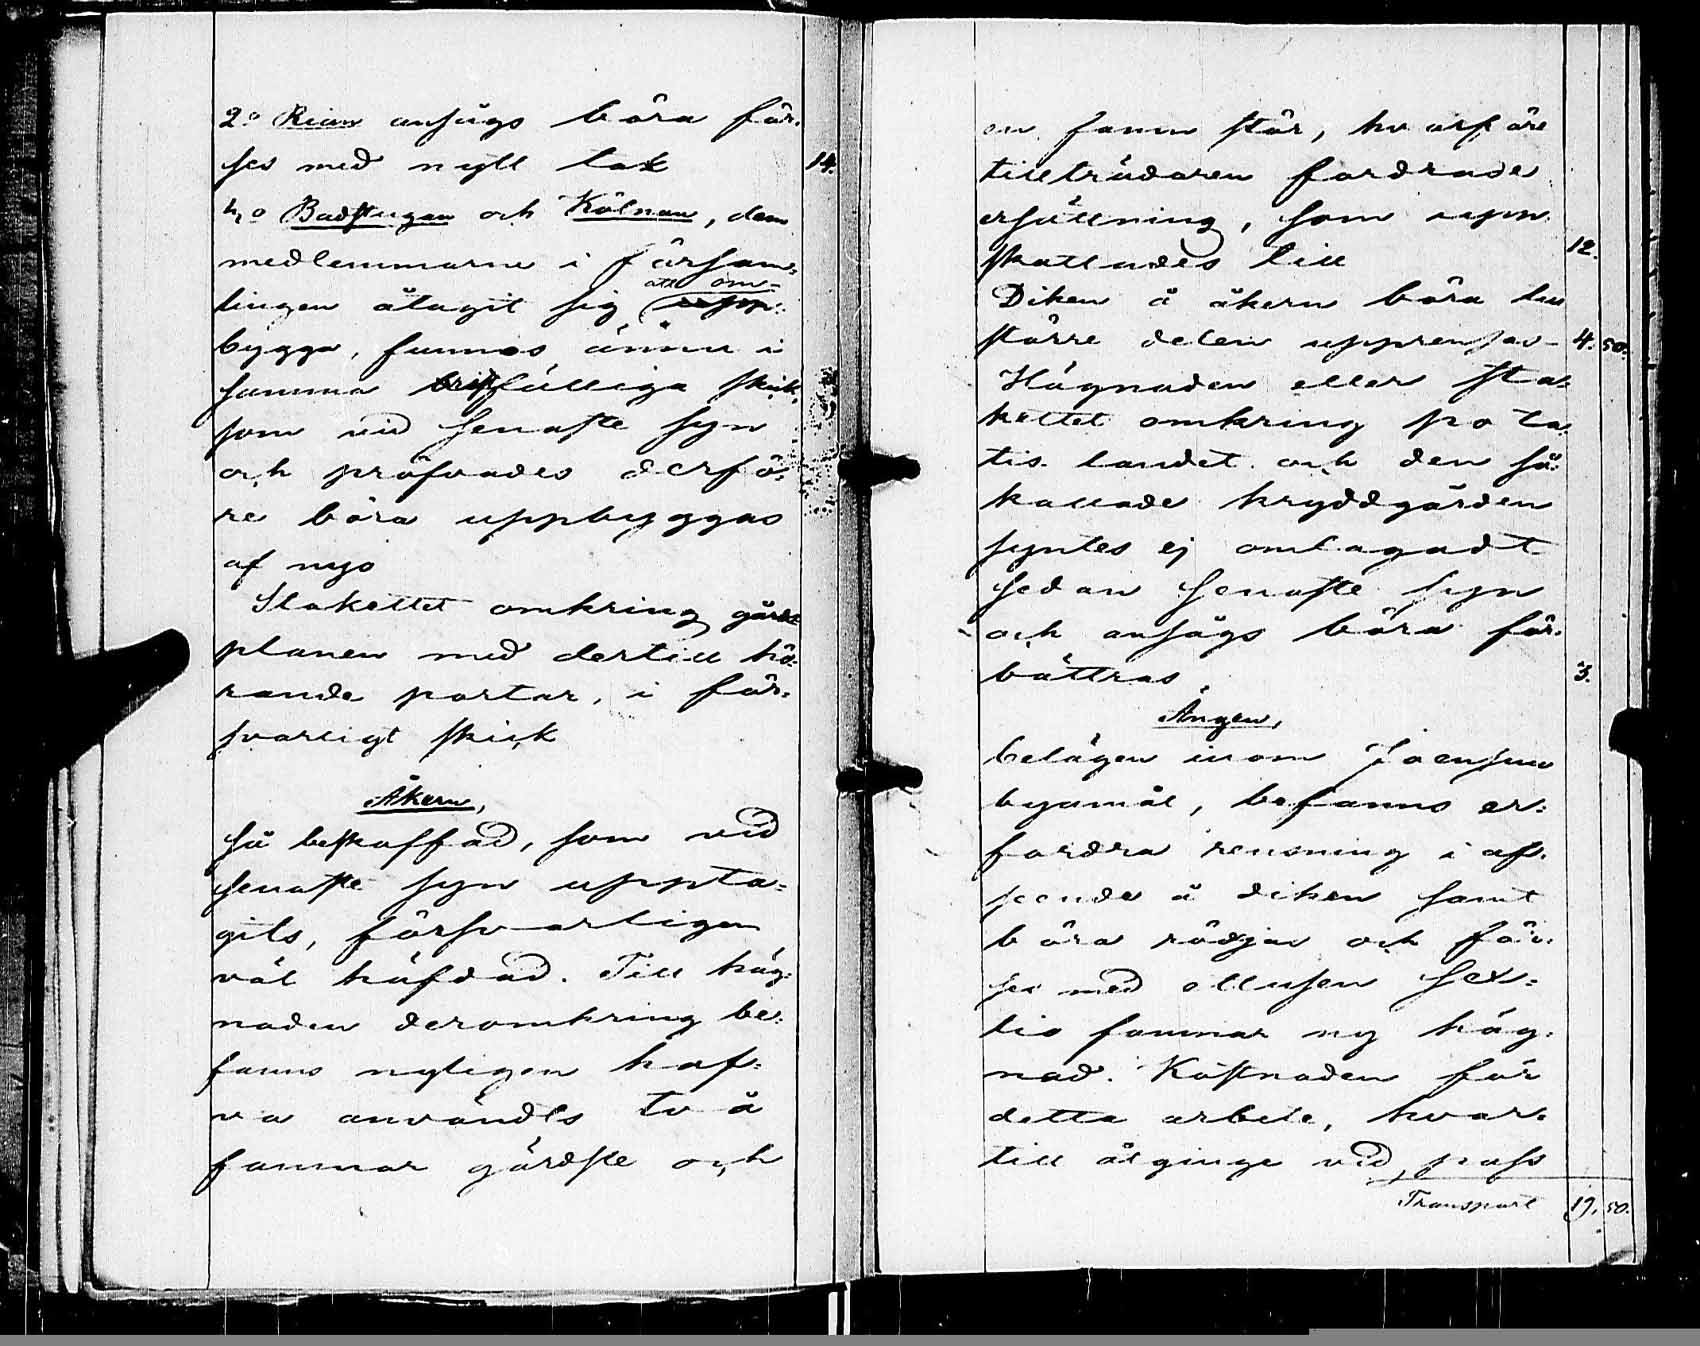 2:o Rian ansågs böra för-
ses med nytt tak 14.
4:o Badstugan och Kölnan, dem
medlemmarne i försam-
lingen åtagit sig att om-
bygga, funnos ännu i
samma bristfälliga skick,
som vid senaste syn
och pröfvades derfö-
re böra uppbyggas
af nyo
Stakettet omkring gårds
planen med dertill hö-
rande portar, i för-
svarligt skick
Åkern,
så beskaffad, som vid
senaste syn uppta-
gits, försvarligen
väl häfdad. Till häg-
naden deromkring be-
fanns nyligen haf-
va användts två
famnar gärdsle och
en famn stör, hvarföre
tillträdaren fordrade
ersättning, som upp-
skattades till 12.
Diken å åkern böra till
större delen upprensas- 4. 50.
Hägnaden eller sta-
kettet omkring pota-
tis landet och den så
kallade kryddgården
syntes ej omlagadt
sedan senaste syn
och ansågs böra för-
bättras 3.
Ängen,
belägen inom Joensuu
byamål, befanns er-
fordra rensning i af-
seende å diken samt
böra rödjas och för-
ses med ellufsen sex-
tio famnar ny häg-
nad. Kostnaden för
detta arbete, hvar-
till åtginge vid pass
Transport 19. 50.